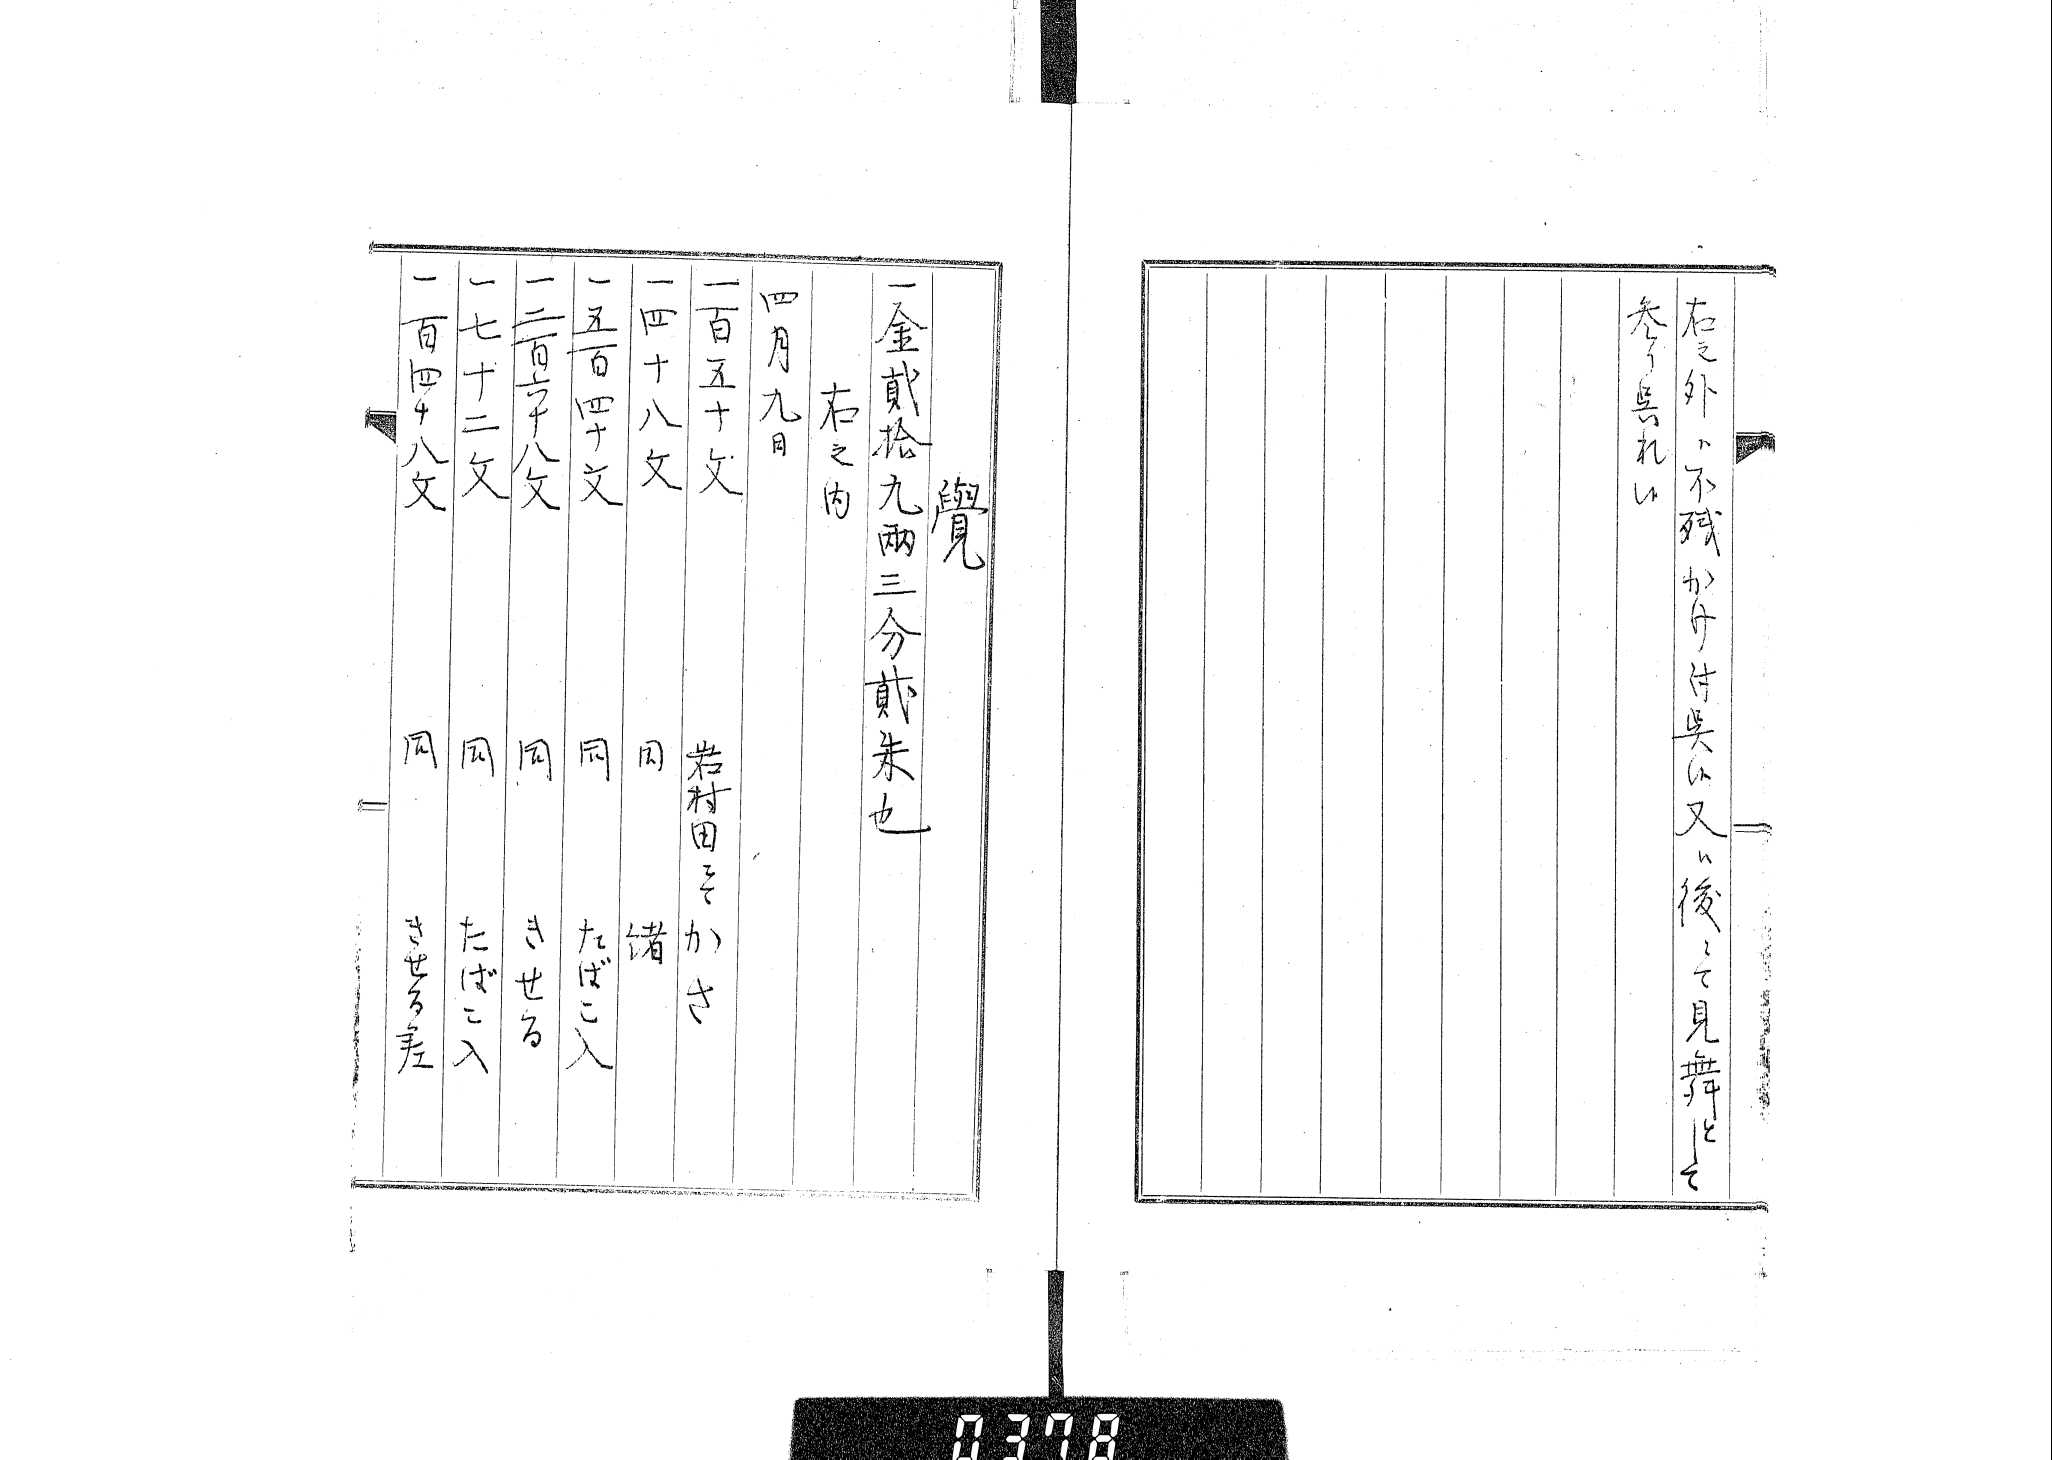 右之外ハ不残かけ付呉候又ハ後ニて見舞として
参り呉れ候
覺
一金貮拾九両三分貮朱也
右之内
四月九日
一百五十文 岩村田ニて かさ
一四十八文 同 緒
一五百四十文 同 たばこ入
一二百六十八文 同 きせる
一七十二文 同 たばこ入
一百四十八文 同 きせる差
0378